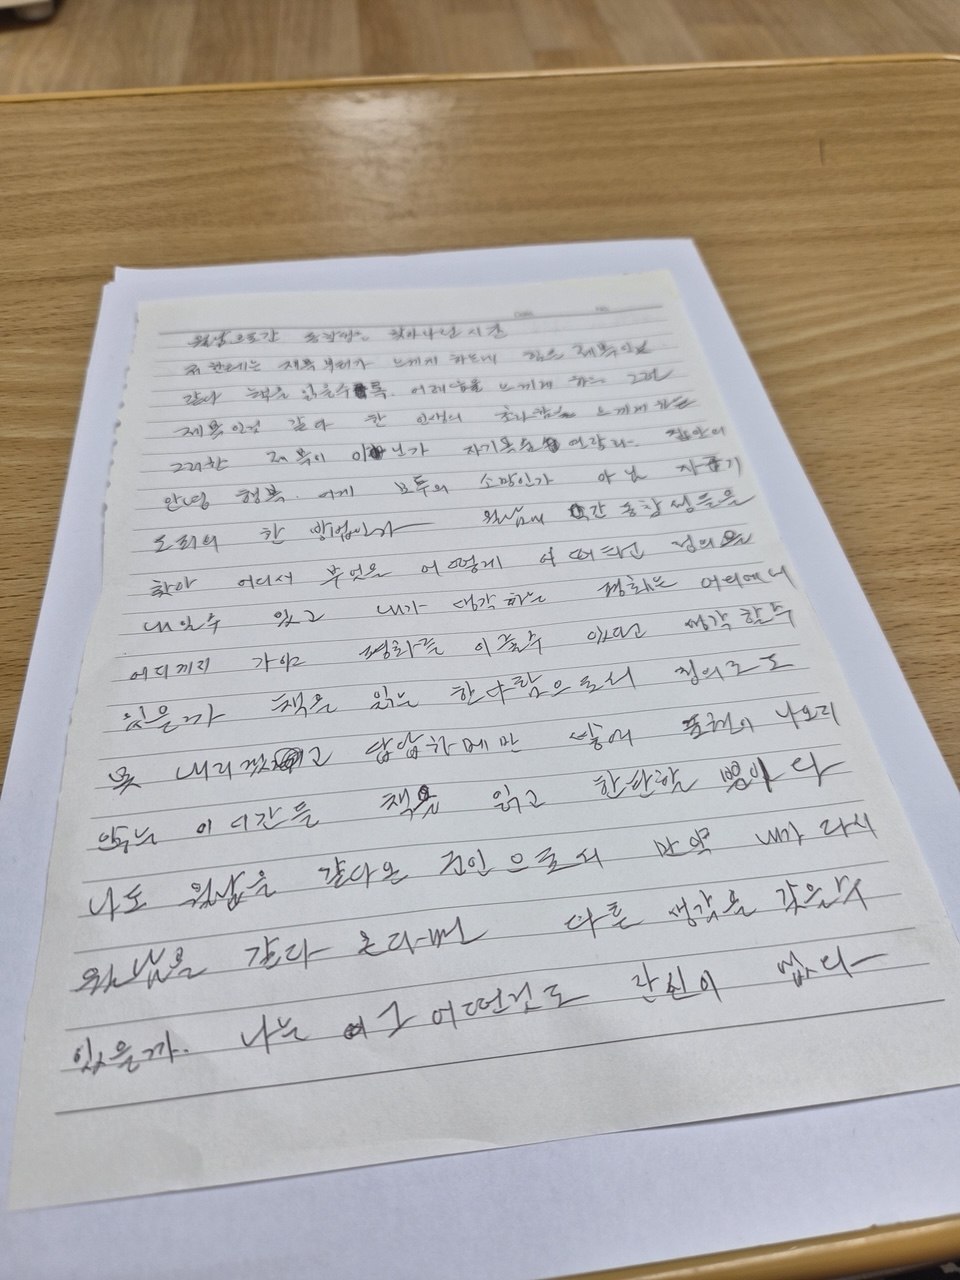 월남으로 간 동창생 찾아나선 시간
한테는 제목부터가 느끼게 하는데 작은 제목인
같다 책을 읽을수록 어려움을 느끼게 하는 그런
제목인것 같다 한 인생의 초라함을 느끼게 하는
그러한 제목이 아닌가 자기
안녕 행복. 이게 모두의 소망인가 아님 자기
도취의 한 방법인가 월남에 간 동창생들을
찾아 어디서 무엇을 어떻게 정의을
내일수 있고 내가 생각하는 평화는 어디에서
어디까지 가야 평화를 이룰수 있다고 생각할수
있을까 책을 읽는 한사람으로서 정의로도
못 내리겠고 답답함에만 쌓여 표현이 나오리
않는 이 시간들 책을 읽고 한탄할 뿐이다
나도 월남을 갔다온 군인으로서 만약 내가 다시
월남을 갔다 온다면 다른 생각을 갖을수
있을까. 나는 그 어떤것도 관심이 없다